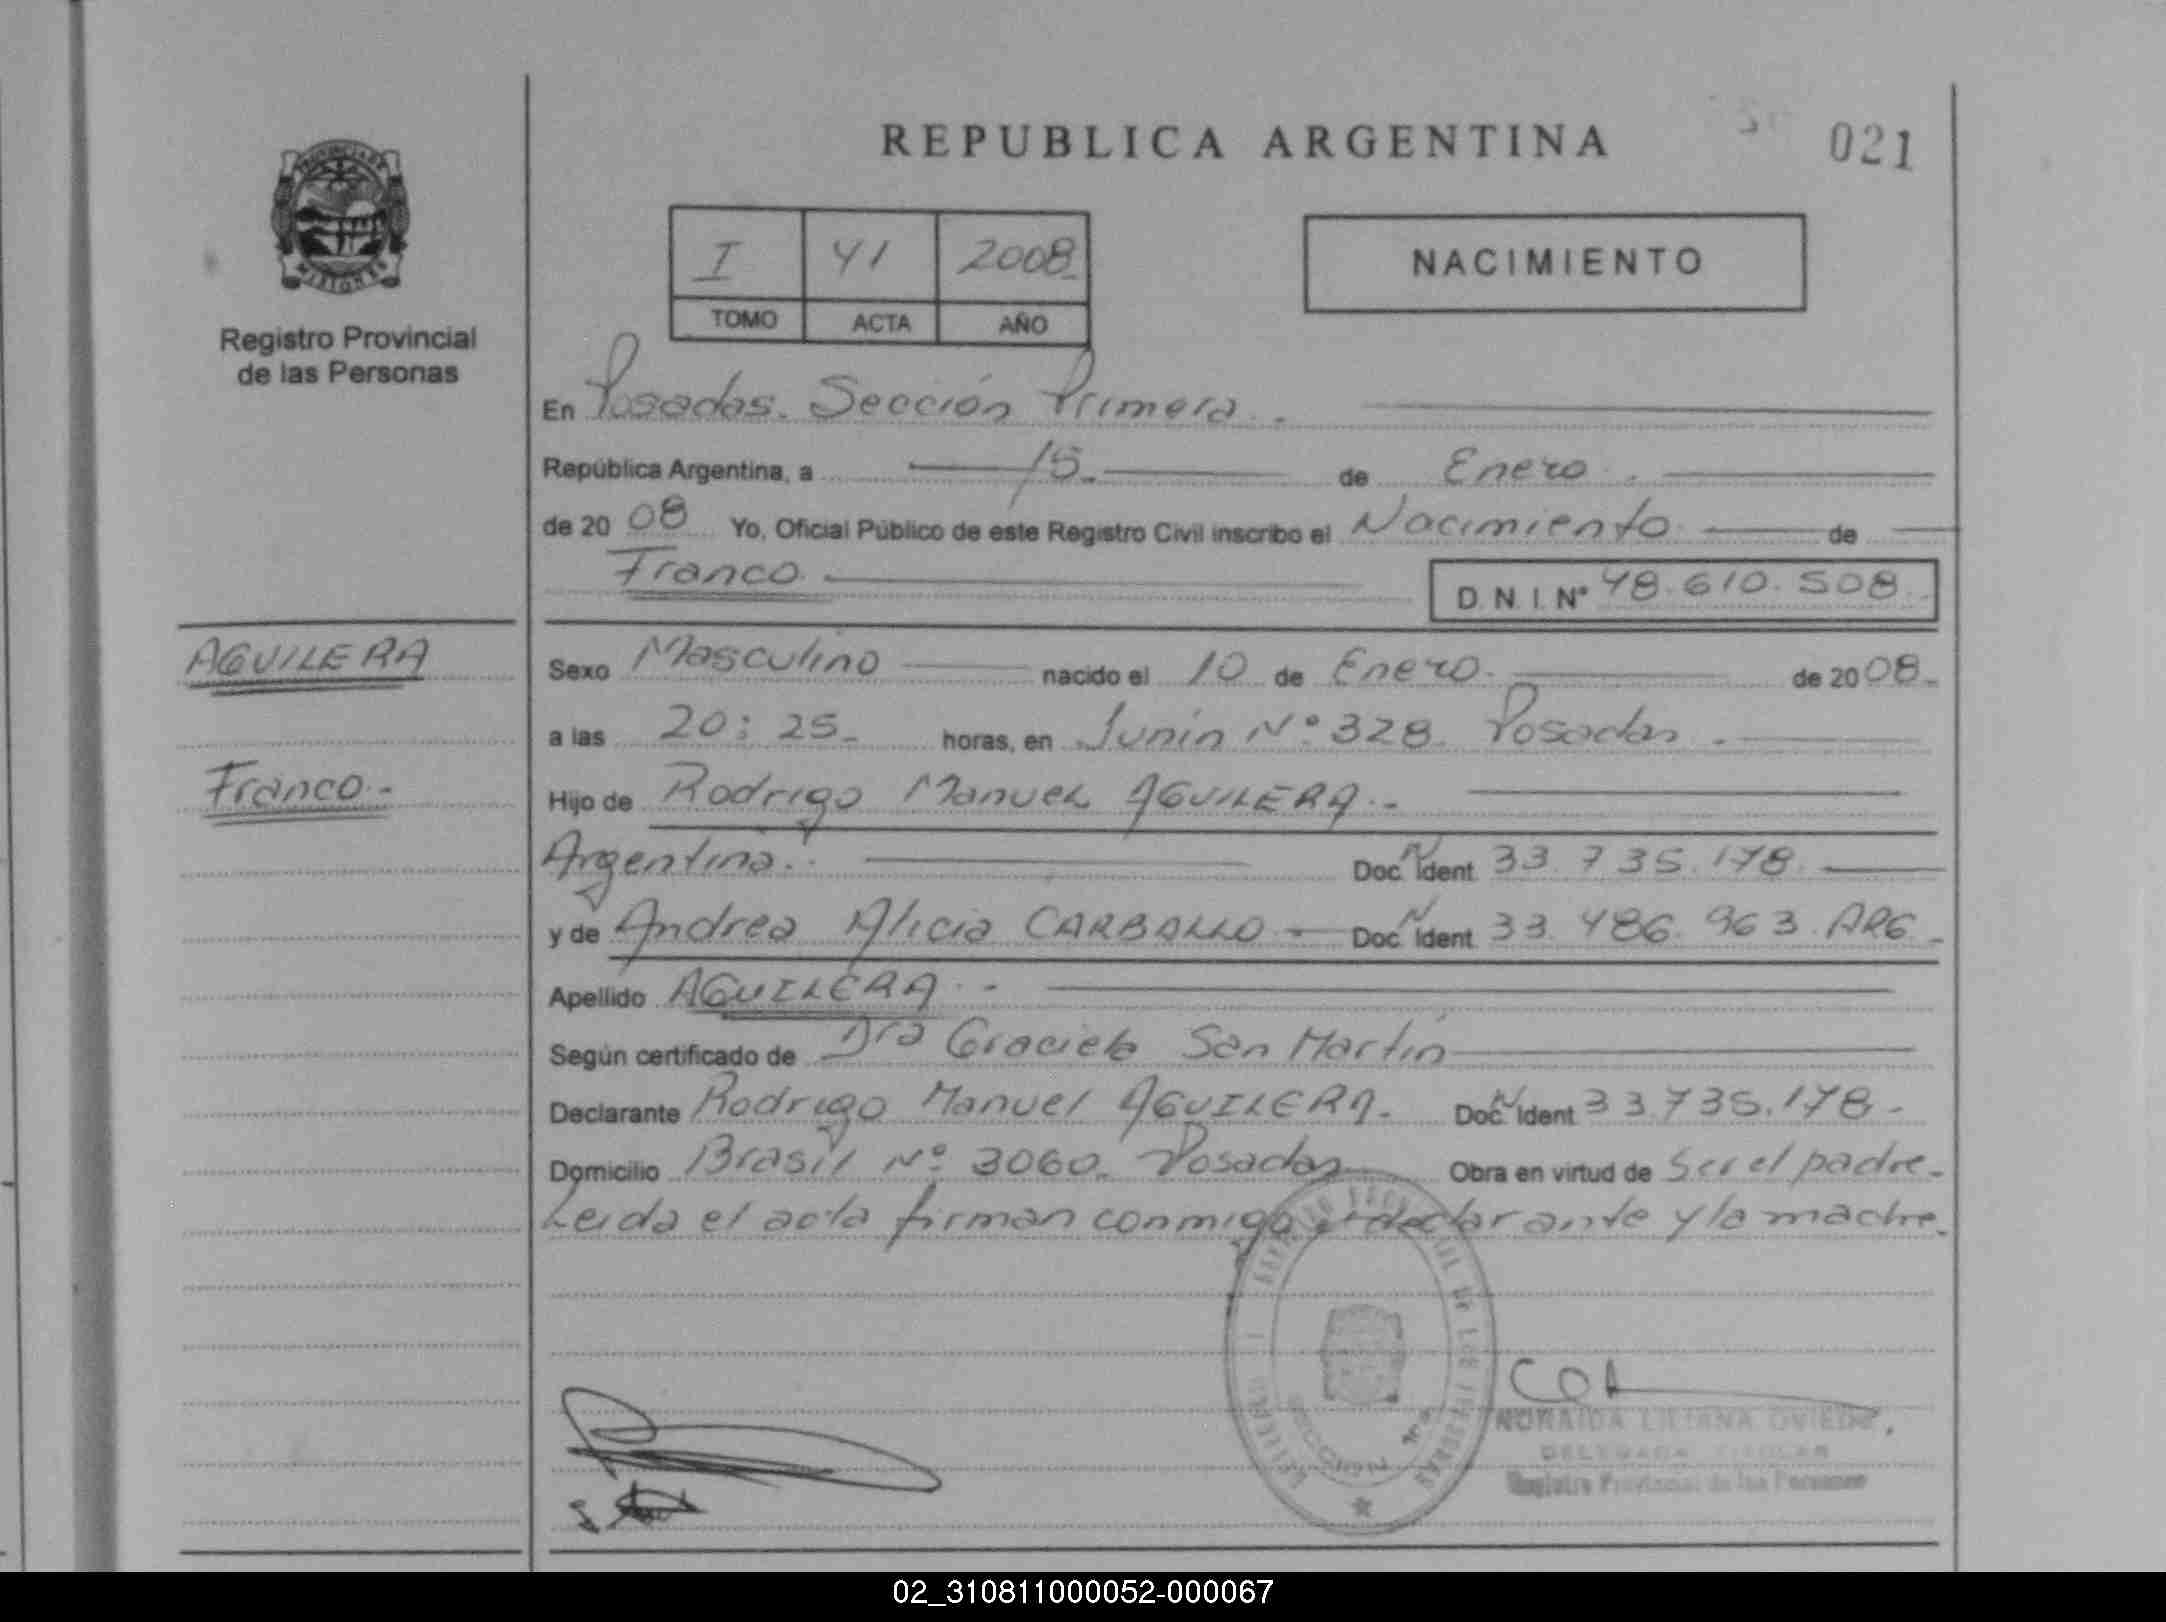 REPUBLICA ARGENTINA
021
PROVINCIA DE
MISIONES
Registro Provincial
de las Personas
I 41 2008
TOMO ACTA AÑO
NACIMIENTO
En Posadas. Sección Primera.
República Argentina, a 15 de Enero.
de 20 08 Yo, Oficial Público de este Registro Civil inscribo el Nacimiento de
Franco D. N. I. N° 48.610.508
AGUILERA
Franco.-
Sexo Masculino nacido el 10 de Enero. de 20 08.
a las 20:25 horas, en Junín N° 328 Posadas.
Hijo de Rodrigo Manuel AGUILERA.-
Argentina. Doc. N Ident 33.735.178.
y de Andrea Alicia CARBALLO - Doc. N Ident 33.486.963. ARG.
Apellido AGUILERA.-
Según certificado de Dra Graciela San Martín
Declarante Rodrigo Manuel AGUILERA. Doc. N Ident 33.735.178-
Domicilio Brasil N° 3060. Posadas Obra en virtud de Ser el padre.
Leida el acta firman conmigo el declarante y la madre.
NORAIDA LILIANA OVIEDO
DELEGADA TITULAR
Registro Provincial de las Personas
02_310811000052-000067